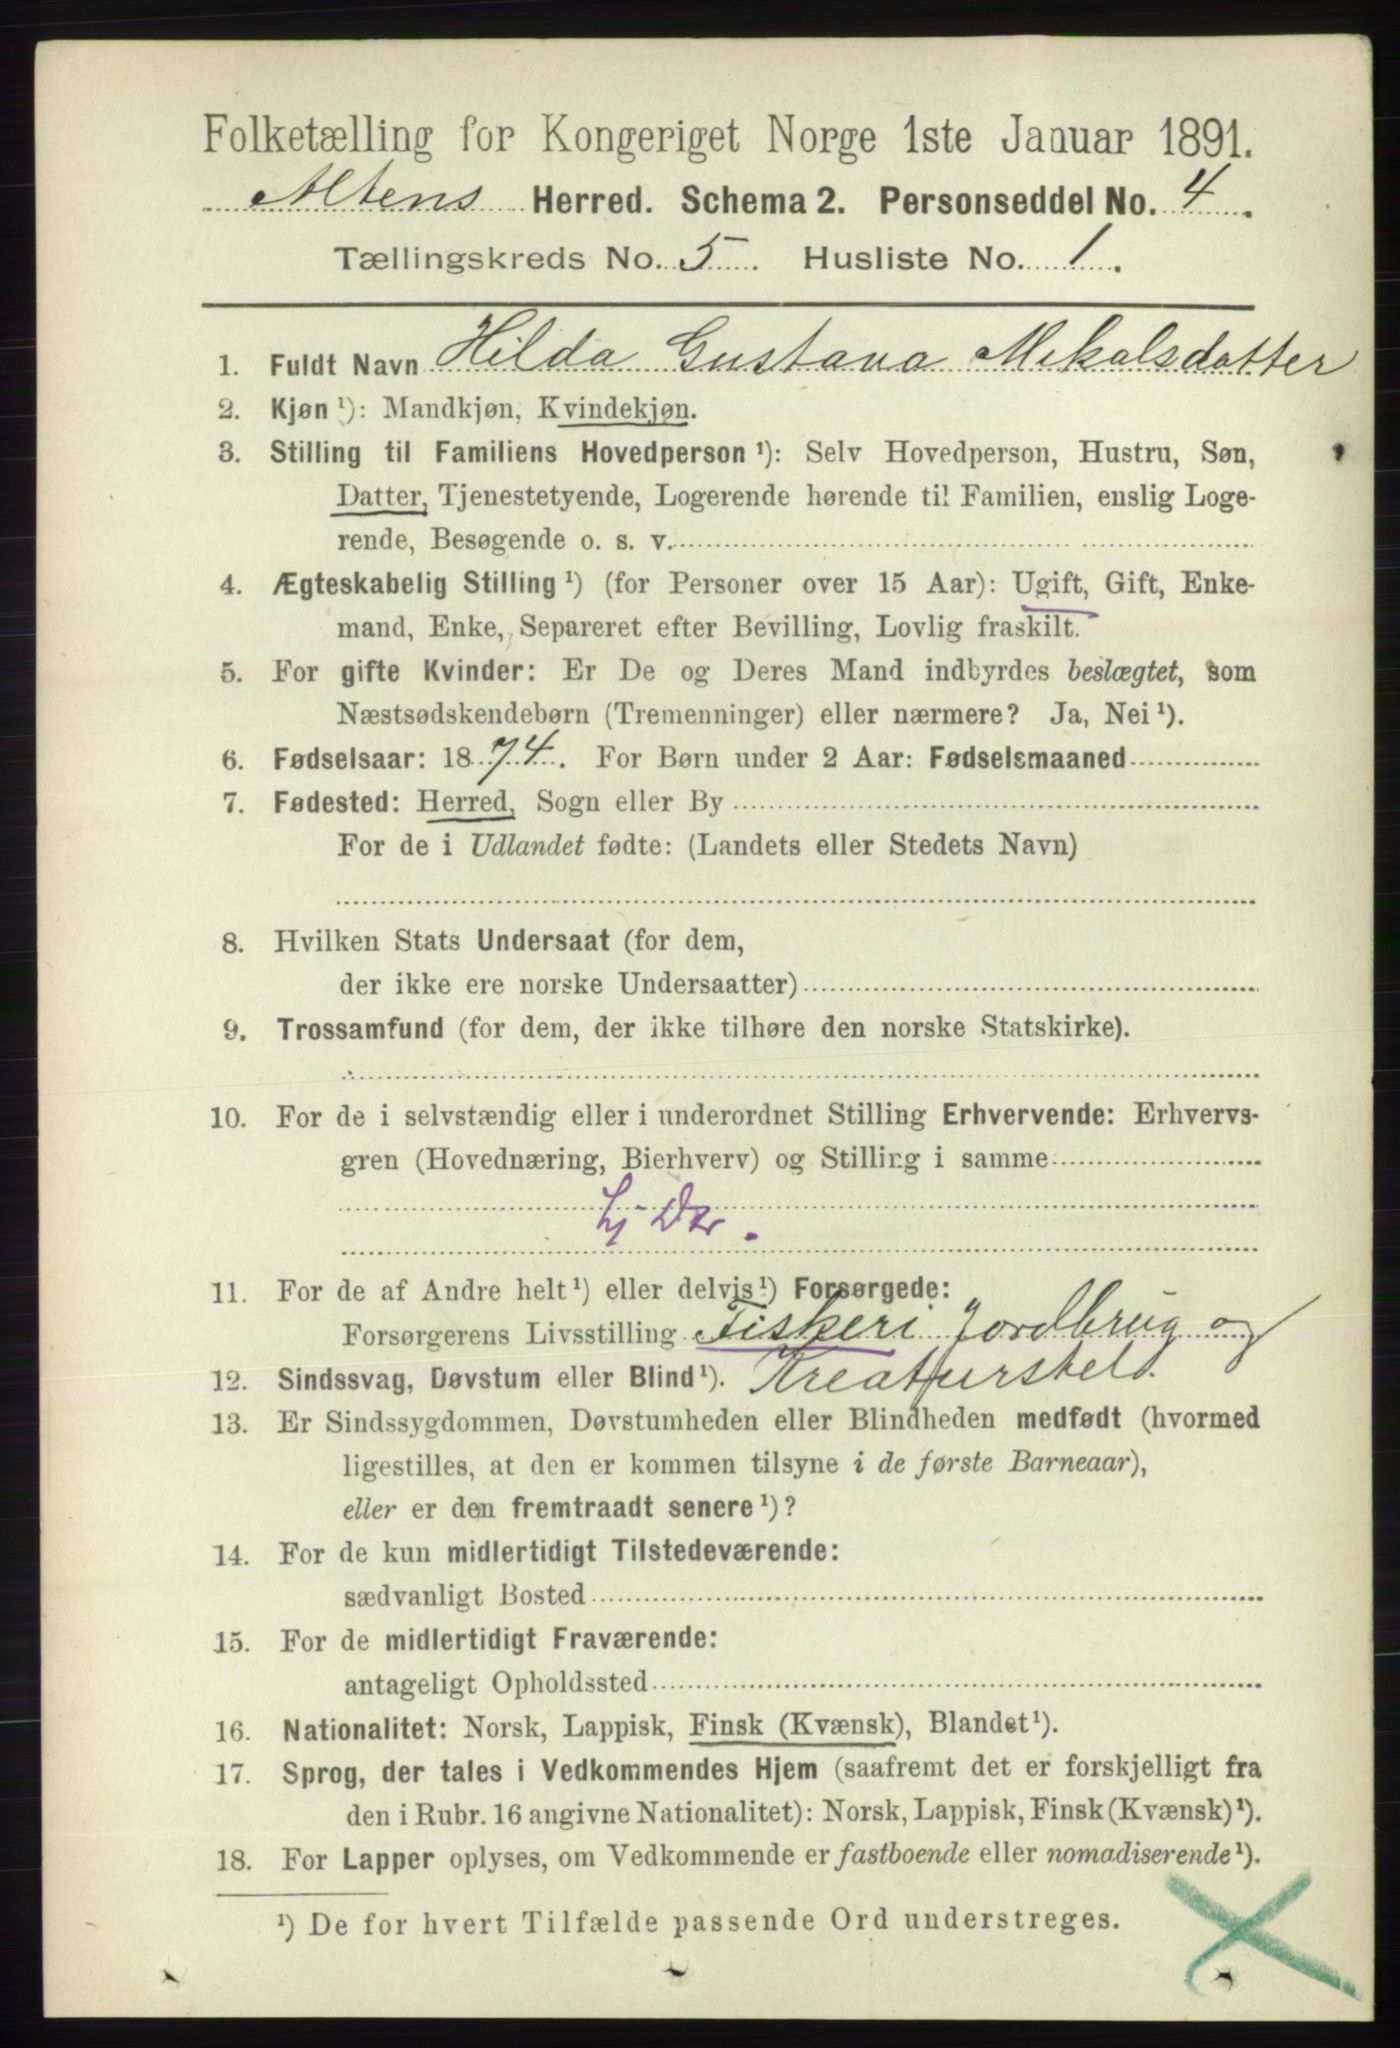 Folketælling for Kongeriget Norge 1ste Januar 1891.
Altens Herred. Schema 2. Personseddel No. 4.
Tællingskreds No. 5. Husliste No. 1.
1. Fuldt Navn Hilda Gustava Mikalsdatter
2. Kjøn ¹): Mandkjøn, Kvindekjøn.
3. Stilling til Familiens Hovedperson ¹): Selv Hovedperson, Hustru, Søn,
Datter, Tjenestetyende, Logerende hørende til Familien, enslig Loge-
rende, Besøgende o. s. v.
4. Ægteskabelig Stilling ¹) (for Personer over 15 Aar): Ugift, Gift, Enke-
mand, Enke, Separeret efter Bevilling, Lovlig fraskilt.
5. For gifte Kvinder: Er De og Deres Mand indbyrdes beslægtet, som
Næstsødskendebørn (Tremenninger) eller nærmere? Ja, Nei ¹).
6. Fødselsaar: 1874. For Børn under 2 Aar: Fødselsmaaned
7. Fødested: Herred, Sogn eller By
For de i Udlandet fødte: (Landets eller Stedets Navn)
8. Hvilken Stats Undersaat (for dem,
der ikke ere norske Undersaatter)
9. Trossamfund (for dem, der ikke tilhøre den norske Statskirke).
10. For de i selvstændig eller i underordnet Stilling Erhvervende: Erhvervs-
gren (Hovednæring, Bierhverv) og Stilling i samme
11. For de af Andre helt ¹) eller delvis ¹) Forsørgede:
Forsørgerens Livsstilling Fiskeri Jordbrug og
12. Sindssvag, Døvstum eller Blind ¹). Kreaturstel.
13. Er Sindssygdommen, Døvstumheden eller Blindheden medfødt (hvormed
ligestilles, at den er kommen tilsyne i de første Barneaar),
eller er den fremtraadt senere ¹)?
14. For de kun midlertidigt Tilstedeværende:
sædvanligt Bosted
15. For de midlertidigt Fraværende:
antageligt Opholdssted
16. Nationalitet: Norsk, Lappisk, Finsk (Kvænsk), Blandet ¹).
17. Sprog, der tales i Vedkommendes Hjem (saafremt det er forskjelligt fra
den i Rubr. 16 angivne Nationalitet): Norsk, Lappisk, Finsk (Kvænsk) ¹).
18. For Lapper oplyses, om Vedkommende er fastboende eller nomadiserende ¹).
¹) De for hvert Tilfælde passende Ord understreges.